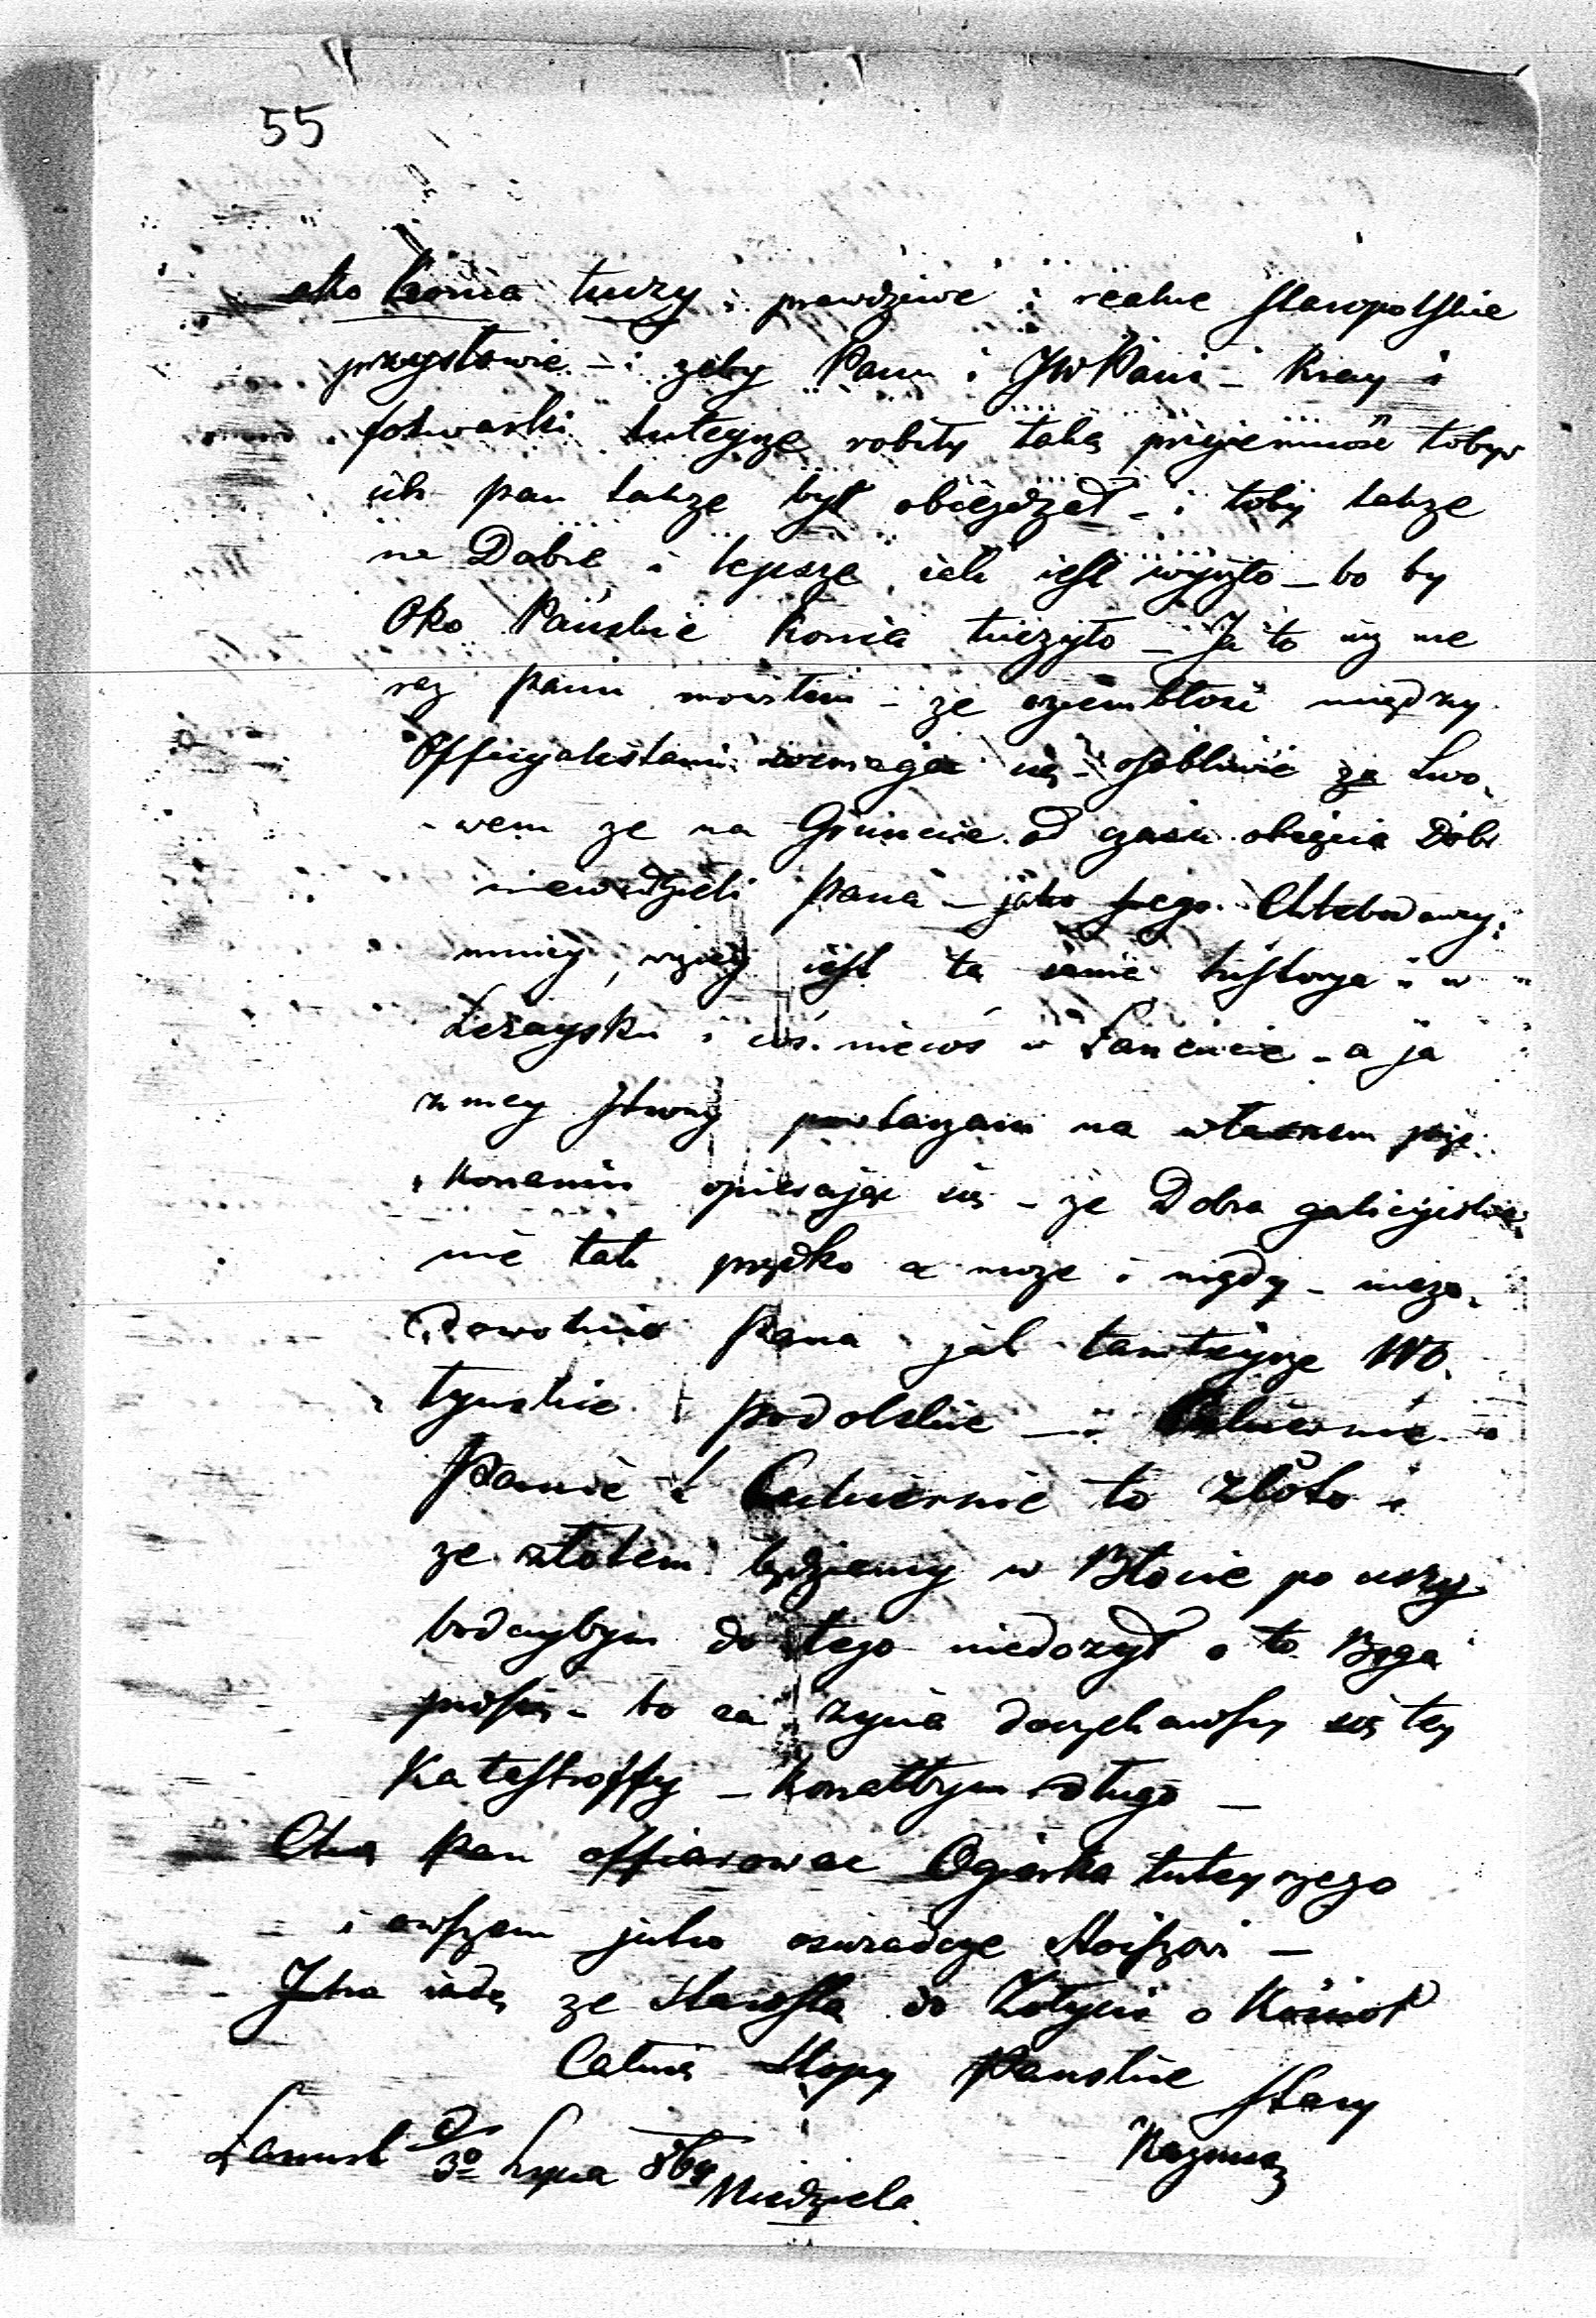 55
oko konia tuczy i prawdziwe i realne staropolskie
przysłowie – i żeby Panu i JWPani – Kray i
folwarki tuteysze robiły taką przyiemność tobyś
ich pan także był obieżdżał – i toby także
na Dobre i lepsze ich iest wyszło – bo by
Oko Pańskie konia tuczyło – Ja to uż nie
raz panu mowiłem – że oziembłość między
Officyalistami wzmaga się – osobliwie za Lwo-
wem że na Gruncie od czasu obięcia Dóbr
niewidzieli Pana – jako swego Chlebodawcy
mniey, więcey iest ta sama historya i w
Leżaysku i cóś niecóś w Łańcucie – a ja
z mey strony powtarzam na własnem prze-
konaniu opierając się – że Dobra galicyiskie
nie tak prędko a może i nigdy – nieza-
dowolnią Pana jak tamteysze Wo-
łyńskie i podolskie – Cukiernie
Panie Cukiernie to złoto i
ze złotem będziemy w Błocie po uszy
bodaybym do tego niedożył o to Boga
proszę – bo za życia doczekawszy się tey
Katastroffy – konałbym długo –
Chcą Pan offiarować Ogierka tuteyszego
i owszem jutro oświadczę –
Jutro iadę ze Starostą do Żołyni o Kościół
Całuię Stopy Pańskie
Stary
Kazmirz
Łańcut d 30 Lipca 864
Niedziela